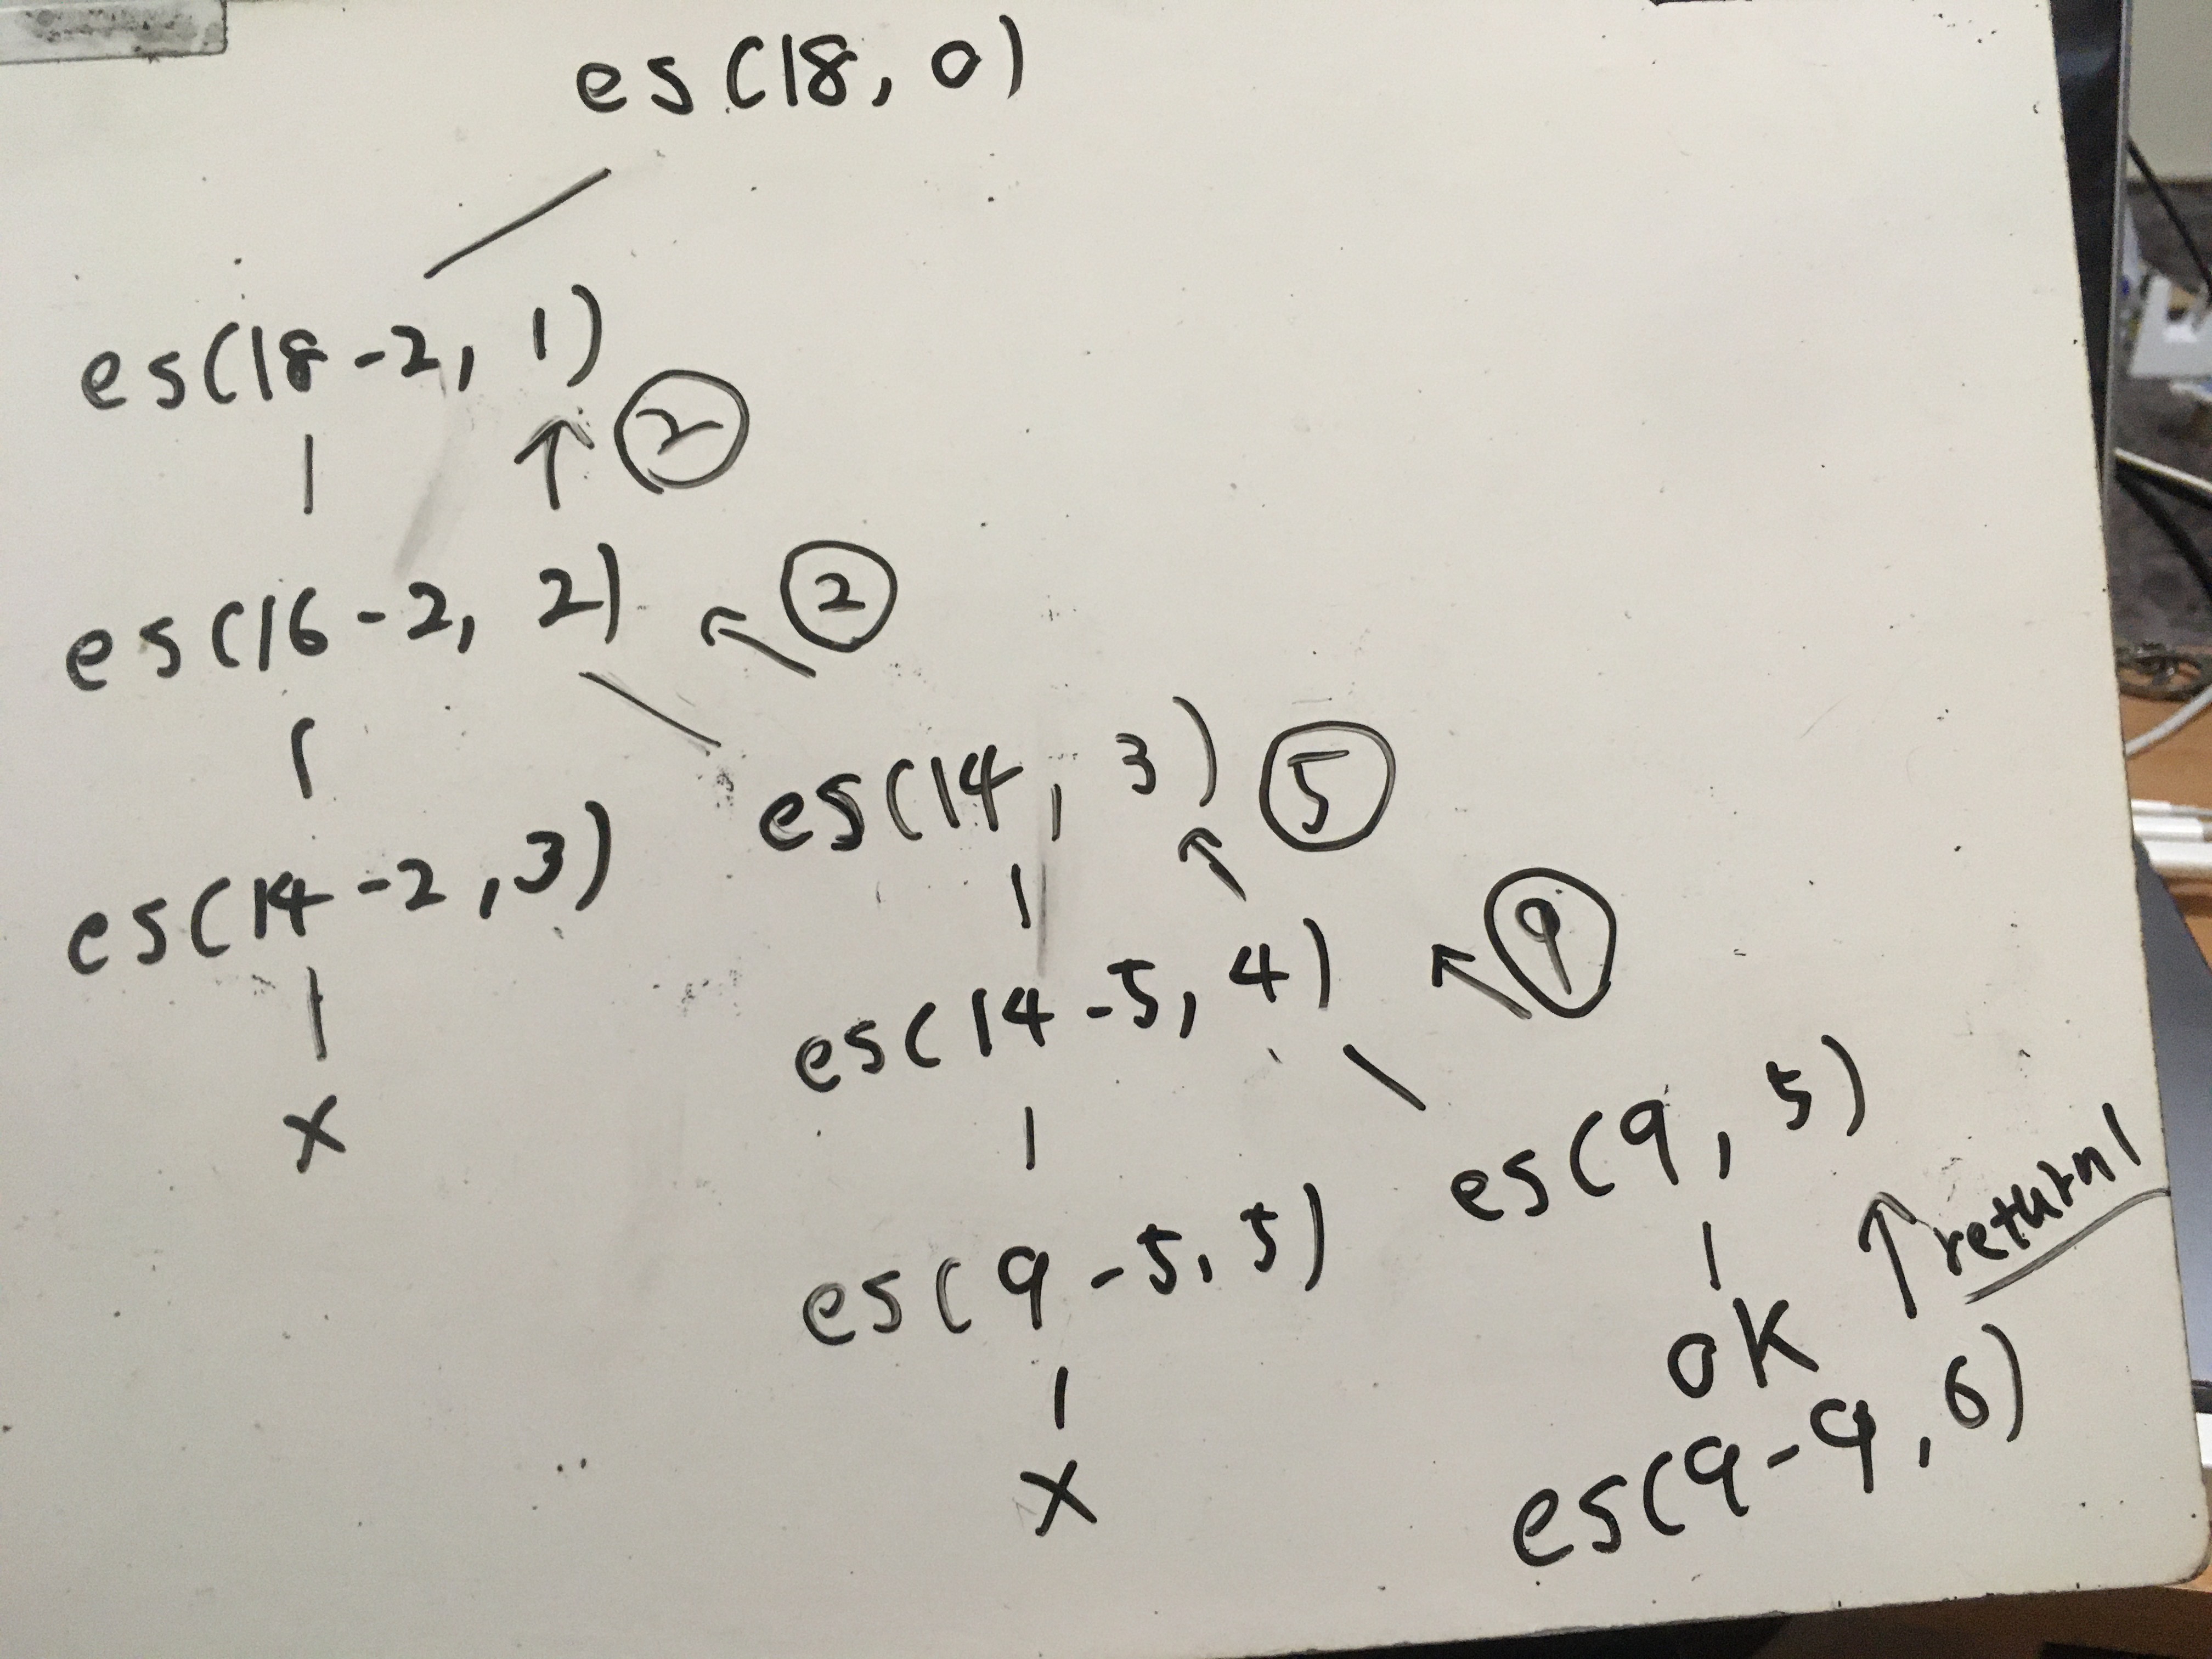 es(18, 0)
es(18-2, 1)
2
es(16-2, 2)
2
es(14-2,3)
X
es(14, 3)
5
es(14-5, 4)
9
es(9-5, 5)
X
es(9, 5)
return
OK
es(9-9,6)